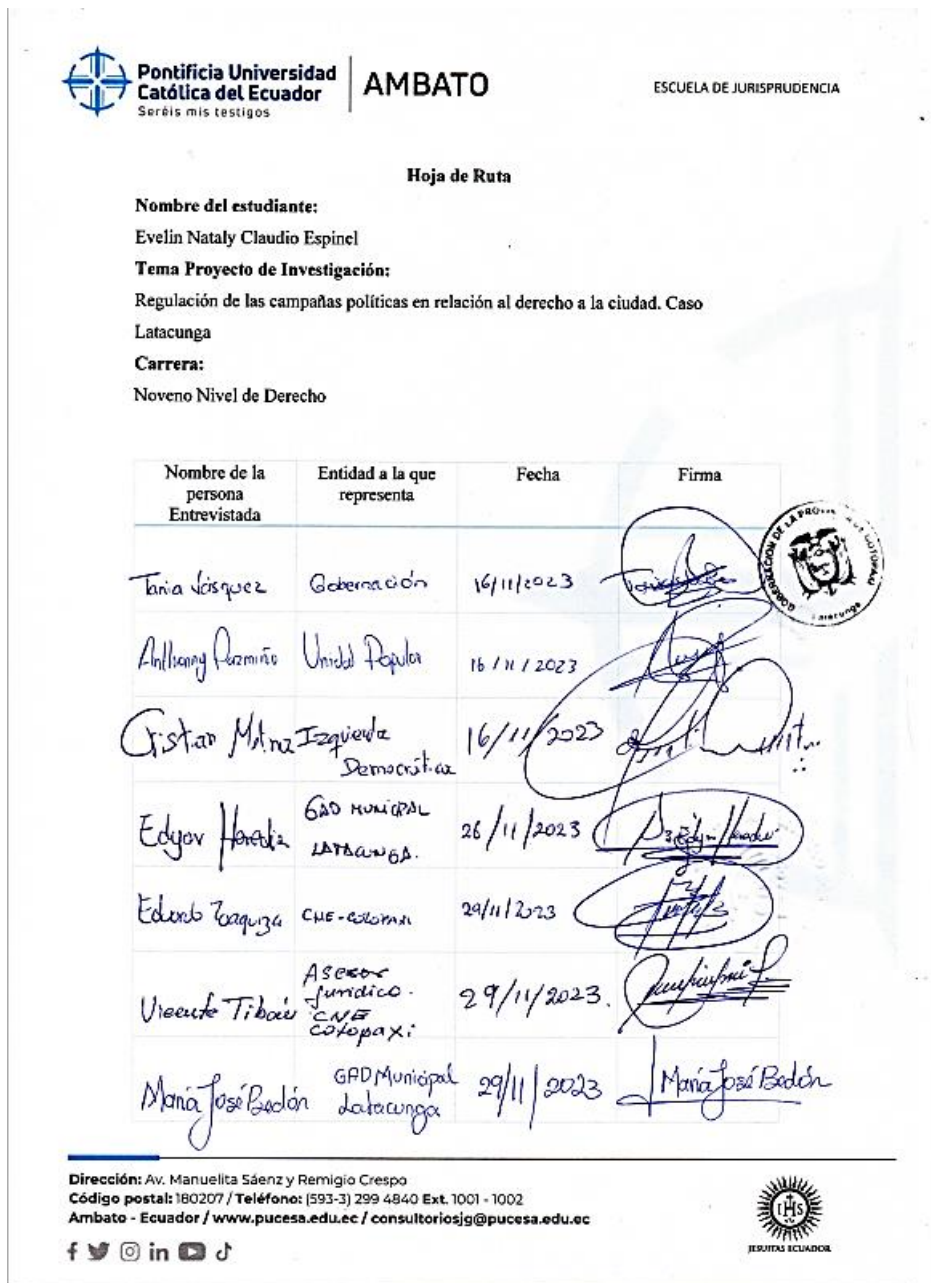 Pontificia Universidad
Católica del Ecuador
Seréis mis testigos
AMBATO
ESCUELA DE JURISPRUDENCIA
Hoja de Ruta
Nombre del estudiante:
Evelin Nataly Claudio Espinel
Tema Proyecto de Investigación:
Regulación de las campañas políticas en relación al derecho a la ciudad. Caso
Latacunga
Carrera:
Noveno Nivel de Derecho
Nombre de la
persona
Entrevistada
Entidad a la que
representa
Fecha
Firma
Tania Vásquez Gobernación 16/11/2023
GOBERNACIÓN DE LA PROVINCIA DE COTOPAXI
Latacunga
Anthonny Pazmiño Unidad Popular 16/11/2023
Cristian Izquierda
Democrática
16/11/2023
Edgar Heredia
GAD MUNICIPAL
LATACUNGA.
26/11/2023
Eduardo Toaquiza CNE-COTOPAXI 29/11/2023
Vicente
Asesor
Jurídico.
CNE
Cotopaxi
29/11/2023.
María José Bedón
GAD Municipal
Latacunga
29/11/2023
María José Bedón
Dirección: Av. Manuelita Sáenz y Remigio Crespo
Código postal: 180207 / Teléfono: (593-3) 299 4840 Ext. 1001 - 1002
Ambato - Ecuador / www.pucesa.edu.ec / consultoriosjg@pucesa.edu.ec
IHS
JESUITAS ECUADOR